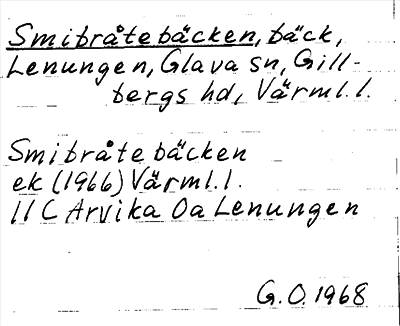 Smibråtebäcken, bäck,
Lenungen, Glava sn, Gill-
bergs hd, Värml.l.
Smibråtebäcken
ek (1966) Värml.l.
11 C Arvika Oa Lenungen
G.O. 1968